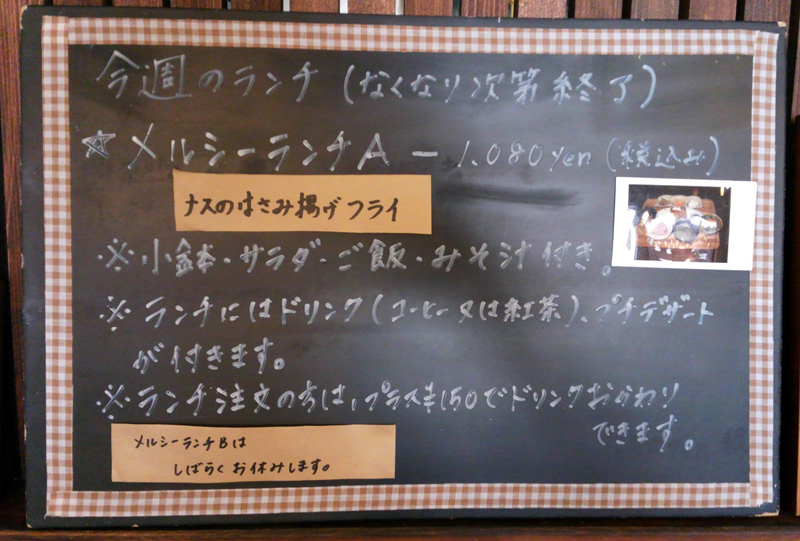 今週のランチ(なくなり次第終了)
☆メルシーランチA ー 1.080yen(税込み)
ナスのはさみ揚げフライ
※小鉢・サラダ・ご飯・みそ汁付き。
※ランチにはドリンク(コーヒー又は紅茶)、プチデザート
が付きます。
※ランチ注文の方は、プラス¥150でドリンクおかわり
できます。
メルシーランチBは
しばらくお休みします。